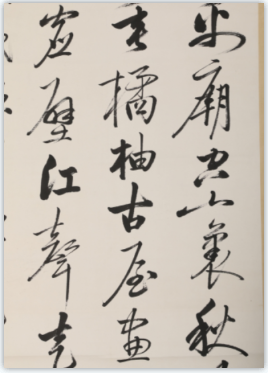 禹廟空山裏秋
垂橘柚古屋畫
虛壁江聲走